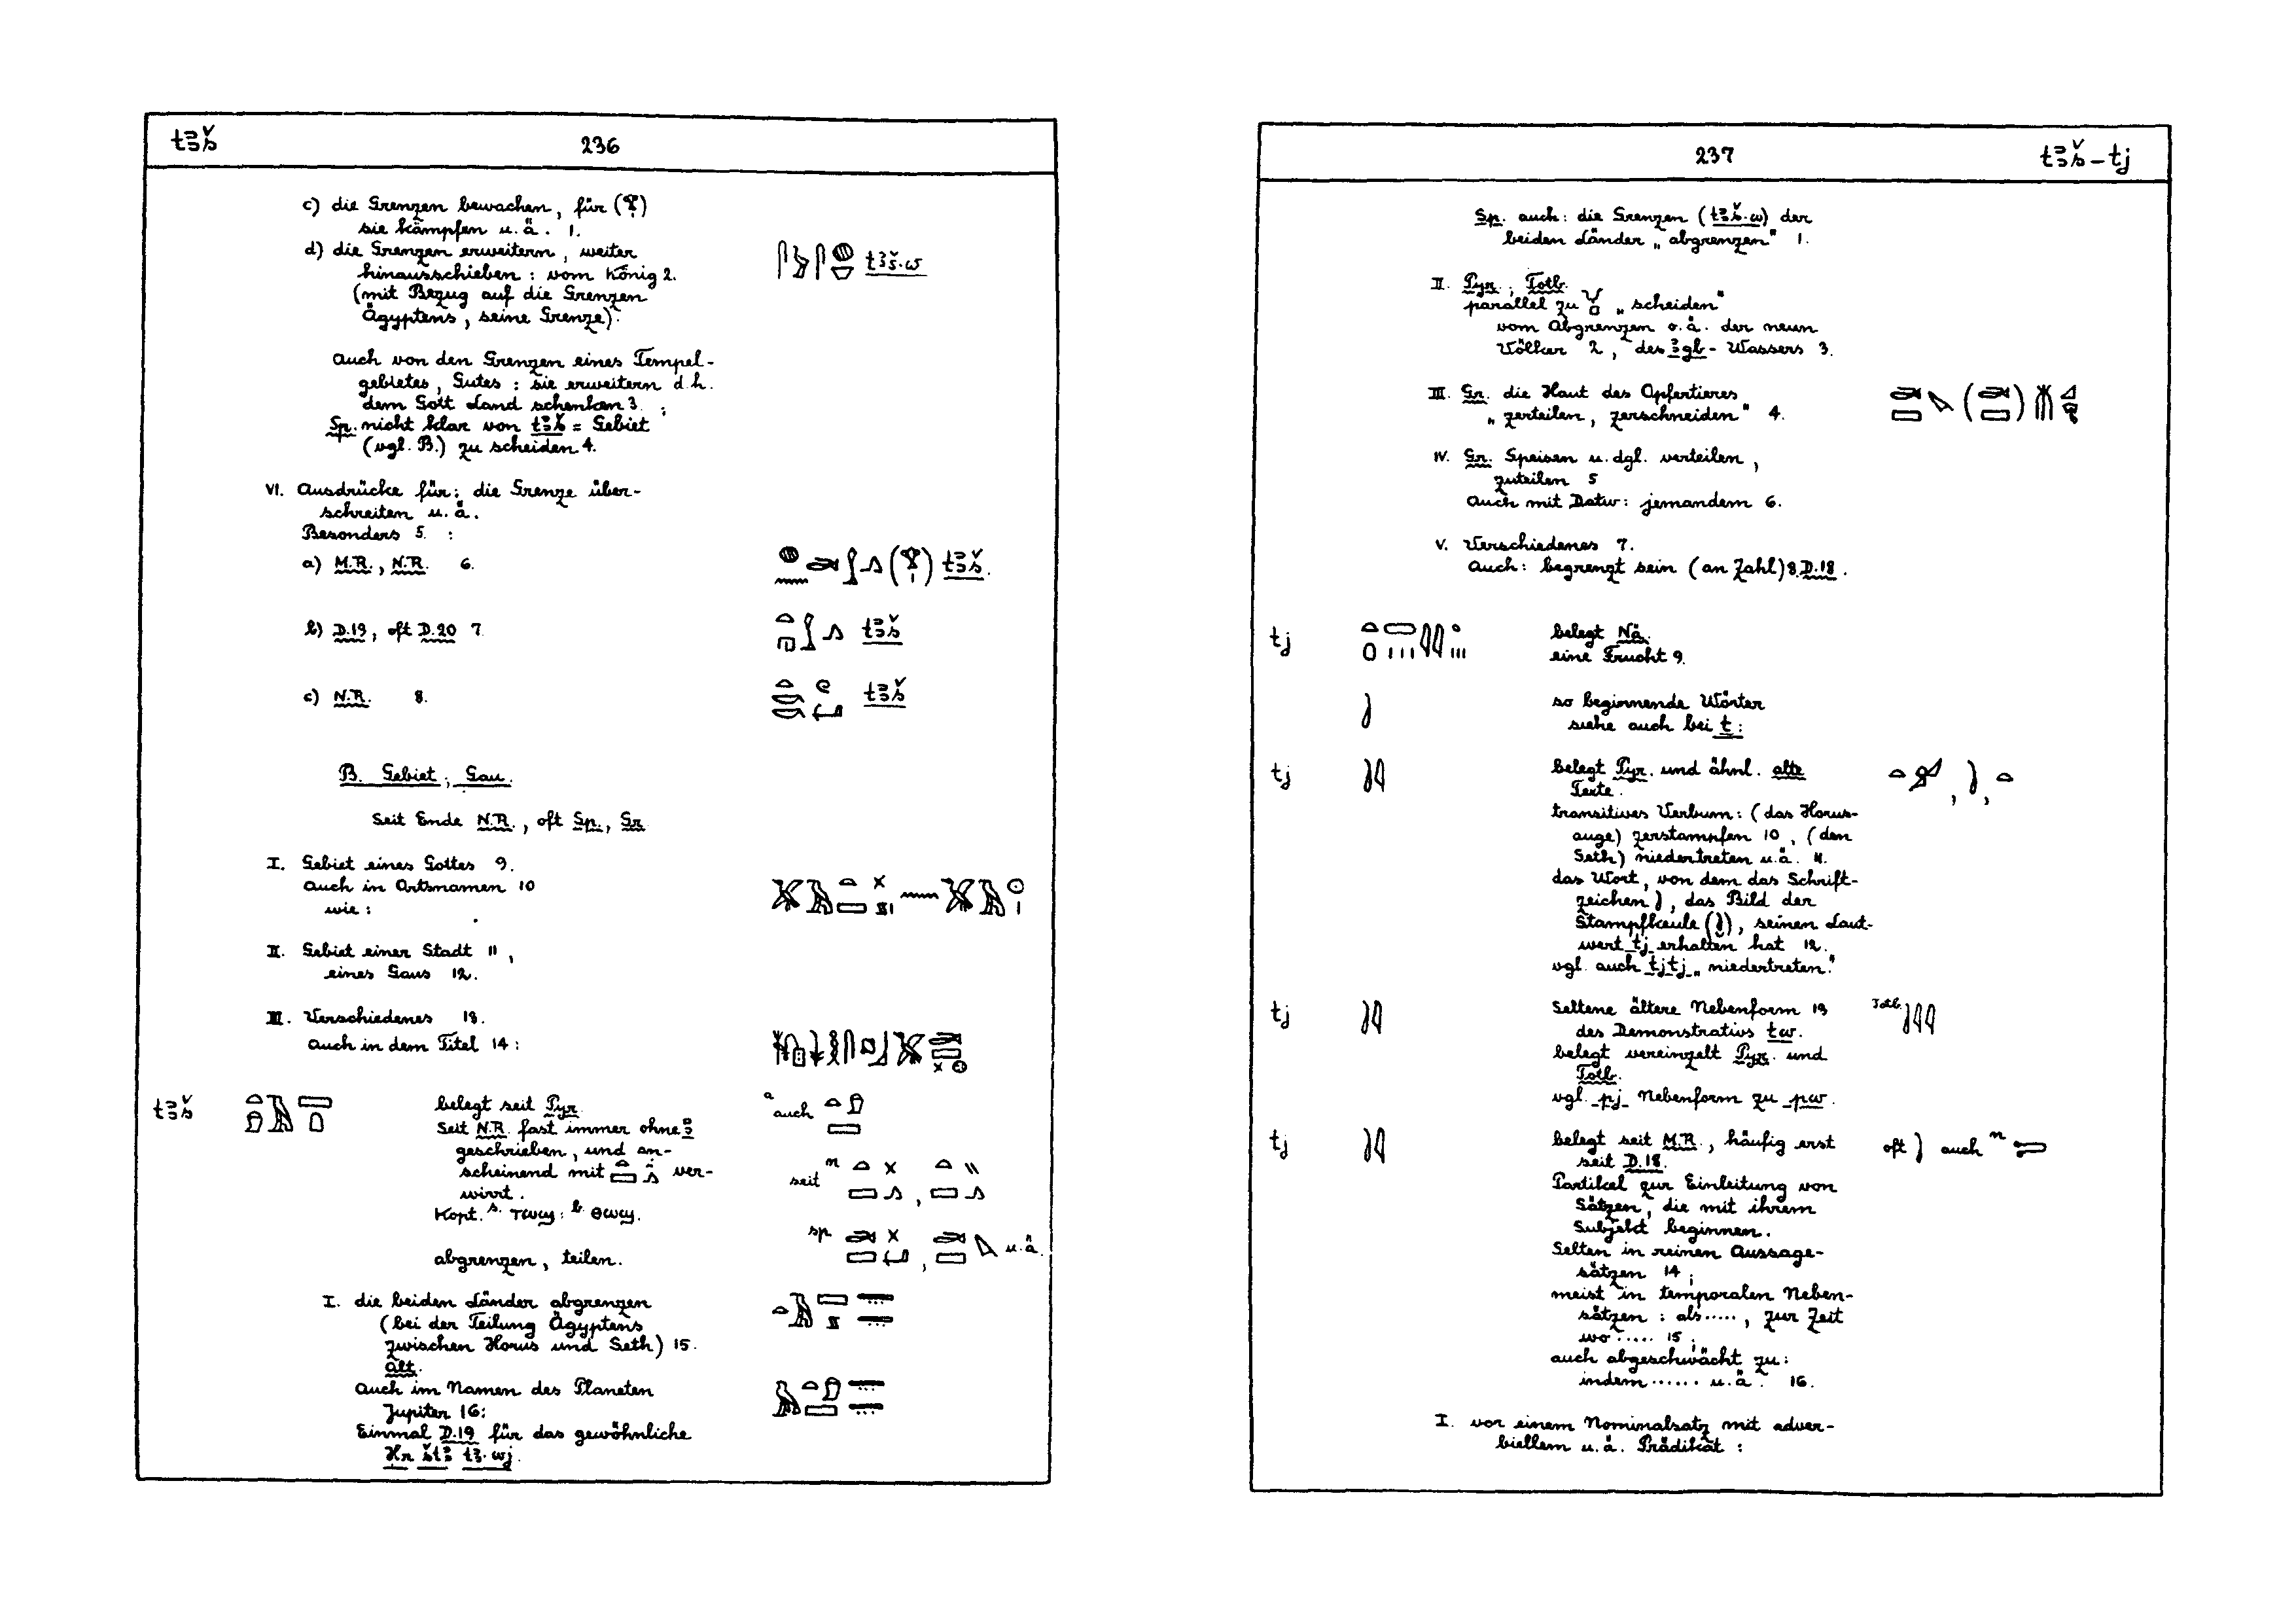 tꜣš 236
c) die Grenzen bewachen, für (𓁷)
sie kämpfen u.ä. 1.
d) die Grenzen erweitern, weiter
hinausschieben : vom König 2. tꜣš.w
(mit Bezug auf die Grenzen
Ägyptens, seine Grenze).
Auch von den Grenzen eines Tempel-
gebietes, Gutes : sie erweitern d.h.
dem Gott Land schenken 3 ;
Sp. nicht klar von tꜣš = Gebiet
(vgl. B.) zu scheiden 4.
VI. Ausdrücke für: die Grenze über-
schreiten u.ä.
Besonders 5. :
a) M.R., N.R. 6. tꜣš.
b) D.19, oft D.20 7. tꜣš
c) N.R. 8. tꜣš
B. Gebiet, Gau.
Seit Ende N.R., oft Sp., Gr.
I. Gebiet eines Gottes 9.
auch in Ortsnamen 10
wie :
II. Gebiet einer Stadt 11,
eines Gaus 12.
III. Verschiedenes 13.
auch in dem Titel 14 :
tꜣš belegt seit Pyr. a auch
Seit N.R. fast immer ohne ꜣ
geschrieben, und an-
scheinend mit ver- seit n ,
wirrt.
Kopt. S. ⲧⲱϣ : B. ⲑⲱϣ.
sp , u.ä.
abgrenzen, teilen.
I. die beiden Länder abgrenzen
(bei der Teilung Ägyptens
zwischen Horus und Seth) 15.
alt.
Auch im Namen des Planeten
Jupiter 16:
Einmal D.19 für das gewöhnliche
Ḥr štꜣ tꜣ.wj.
237 tꜣš – tj
Sp. auch: die Grenzen (tꜣš.w) der
beiden Länder „abgrenzen" 1.
II. Pyr., Totb.
parallel zu „scheiden"
vom Abgrenzen o.ä. der neun
Völker 2, des ꜣgb- Wassers 3.
III. Gr. die Haut des Opfertieres
„zerteilen, zerschneiden" 4.
IV. Gr. Speisen u. dgl. verteilen,
zuteilen 5
Auch mit Dativ: jemandem 6.
V. Verschiedenes 7.
Auch: begrenzt sein (an Zahl) 8 D.18.
tj belegt Nä.
eine Frucht 9.
so beginnende Wörter
siehe auch bei t :
tj belegt Pyr. und ähnl. alte
Texte.
transitives Verbum: (das Horus-
auge) zerstampfen 10, (den
Seth) niedertreten u.ä. 11.
das Wort, von dem das Schrift-
zeichen 𓍘, das Bild der
Stampfkeule (𓍘), seinen Laut-
wert tj erhalten hat 12.
vgl. auch tjtj „niedertreten."
tj Seltene ältere Nebenform 13 Totb.
des Demonstrativs tw.
belegt vereinzelt Pyr. und
Totb.
vgl. pj Nebenform zu pw.
tj belegt seit M.R., häufig erst oft 𓍘 auch n
seit D.18.
Partikel zur Einleitung von
Sätzen, die mit ihrem
Subjekt beginnen.
Selten in reinen Aussage-
sätzen 14;
meist in temporalen Neben-
sätzen : als ....., zur Zeit
wo ..... 15;
auch abgeschwächt zu:
indem ...... u.ä. 16.
I. vor einem Nominalsatz mit adver-
biellem u.ä. Prädikat :